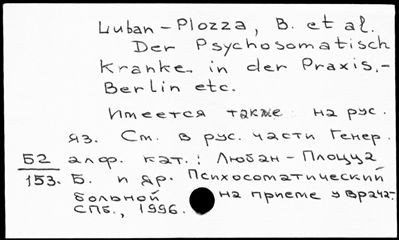 Luban-Plozza, B. et al.
Der Psychosomatisch
Kranke in der Praxis.-
Berlin etc.
Имеется также на рус.
яз. См. в рус. части Генер.
Б2 алф. кат.: Любан-Плоцца
153. Б. и др. Психосоматический
больной на приеме у врача.
СПб., 1996.